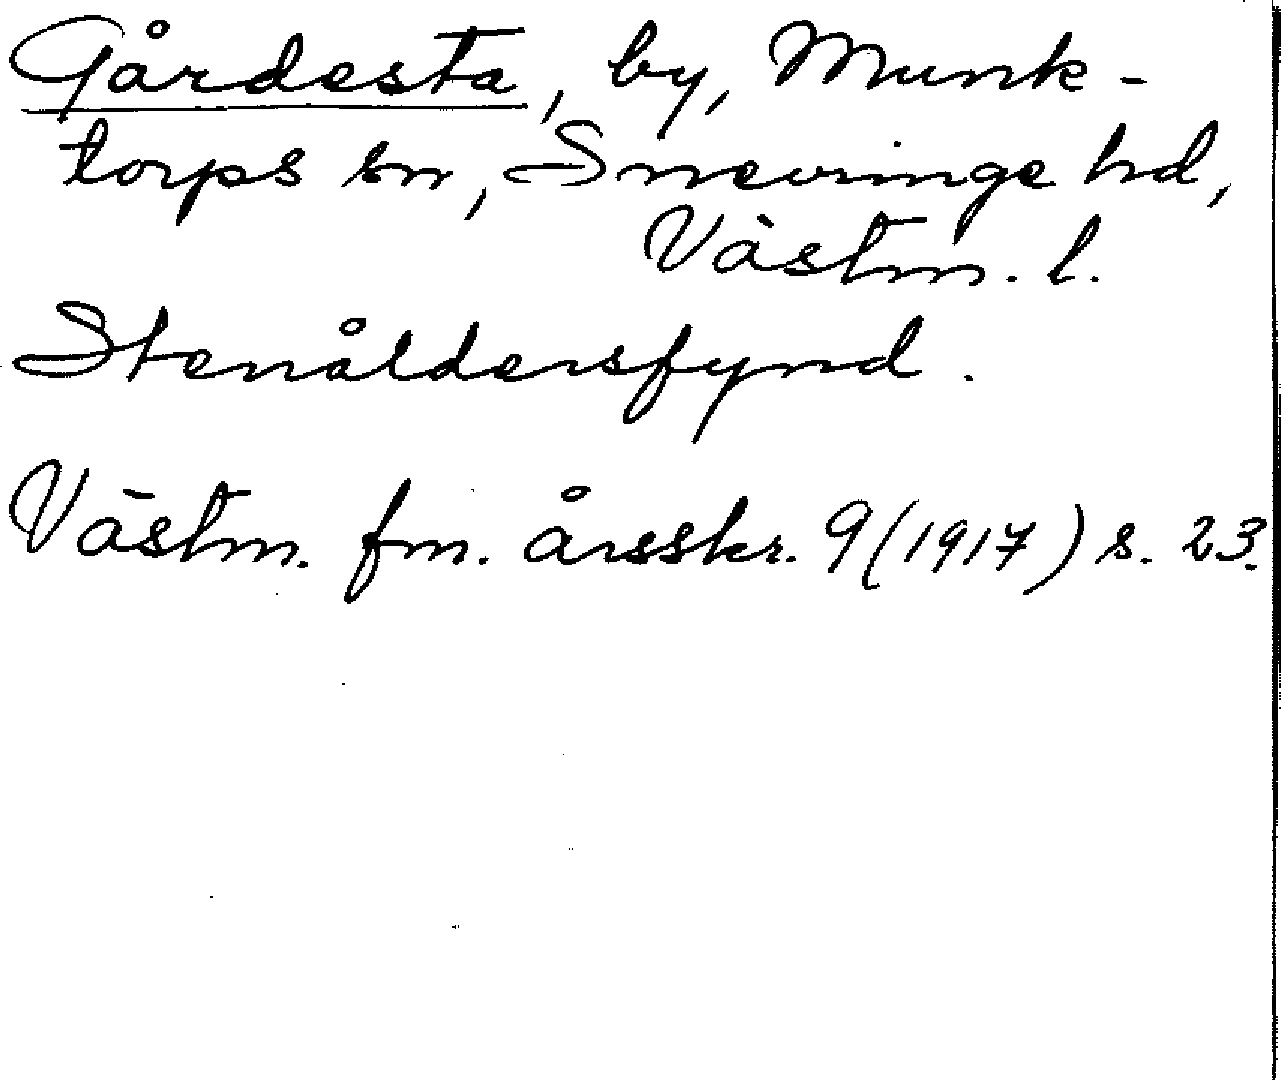 Gårdesta, by, Munk-
torps sn, Snevringe hd,
Västm. l.
Stenåldersfynd.
Västm. fm. årsskr. 9 (1917) s. 23.